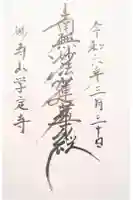 令和六年三月二十日
南無妙法蓮華経
妙寺山学定寺